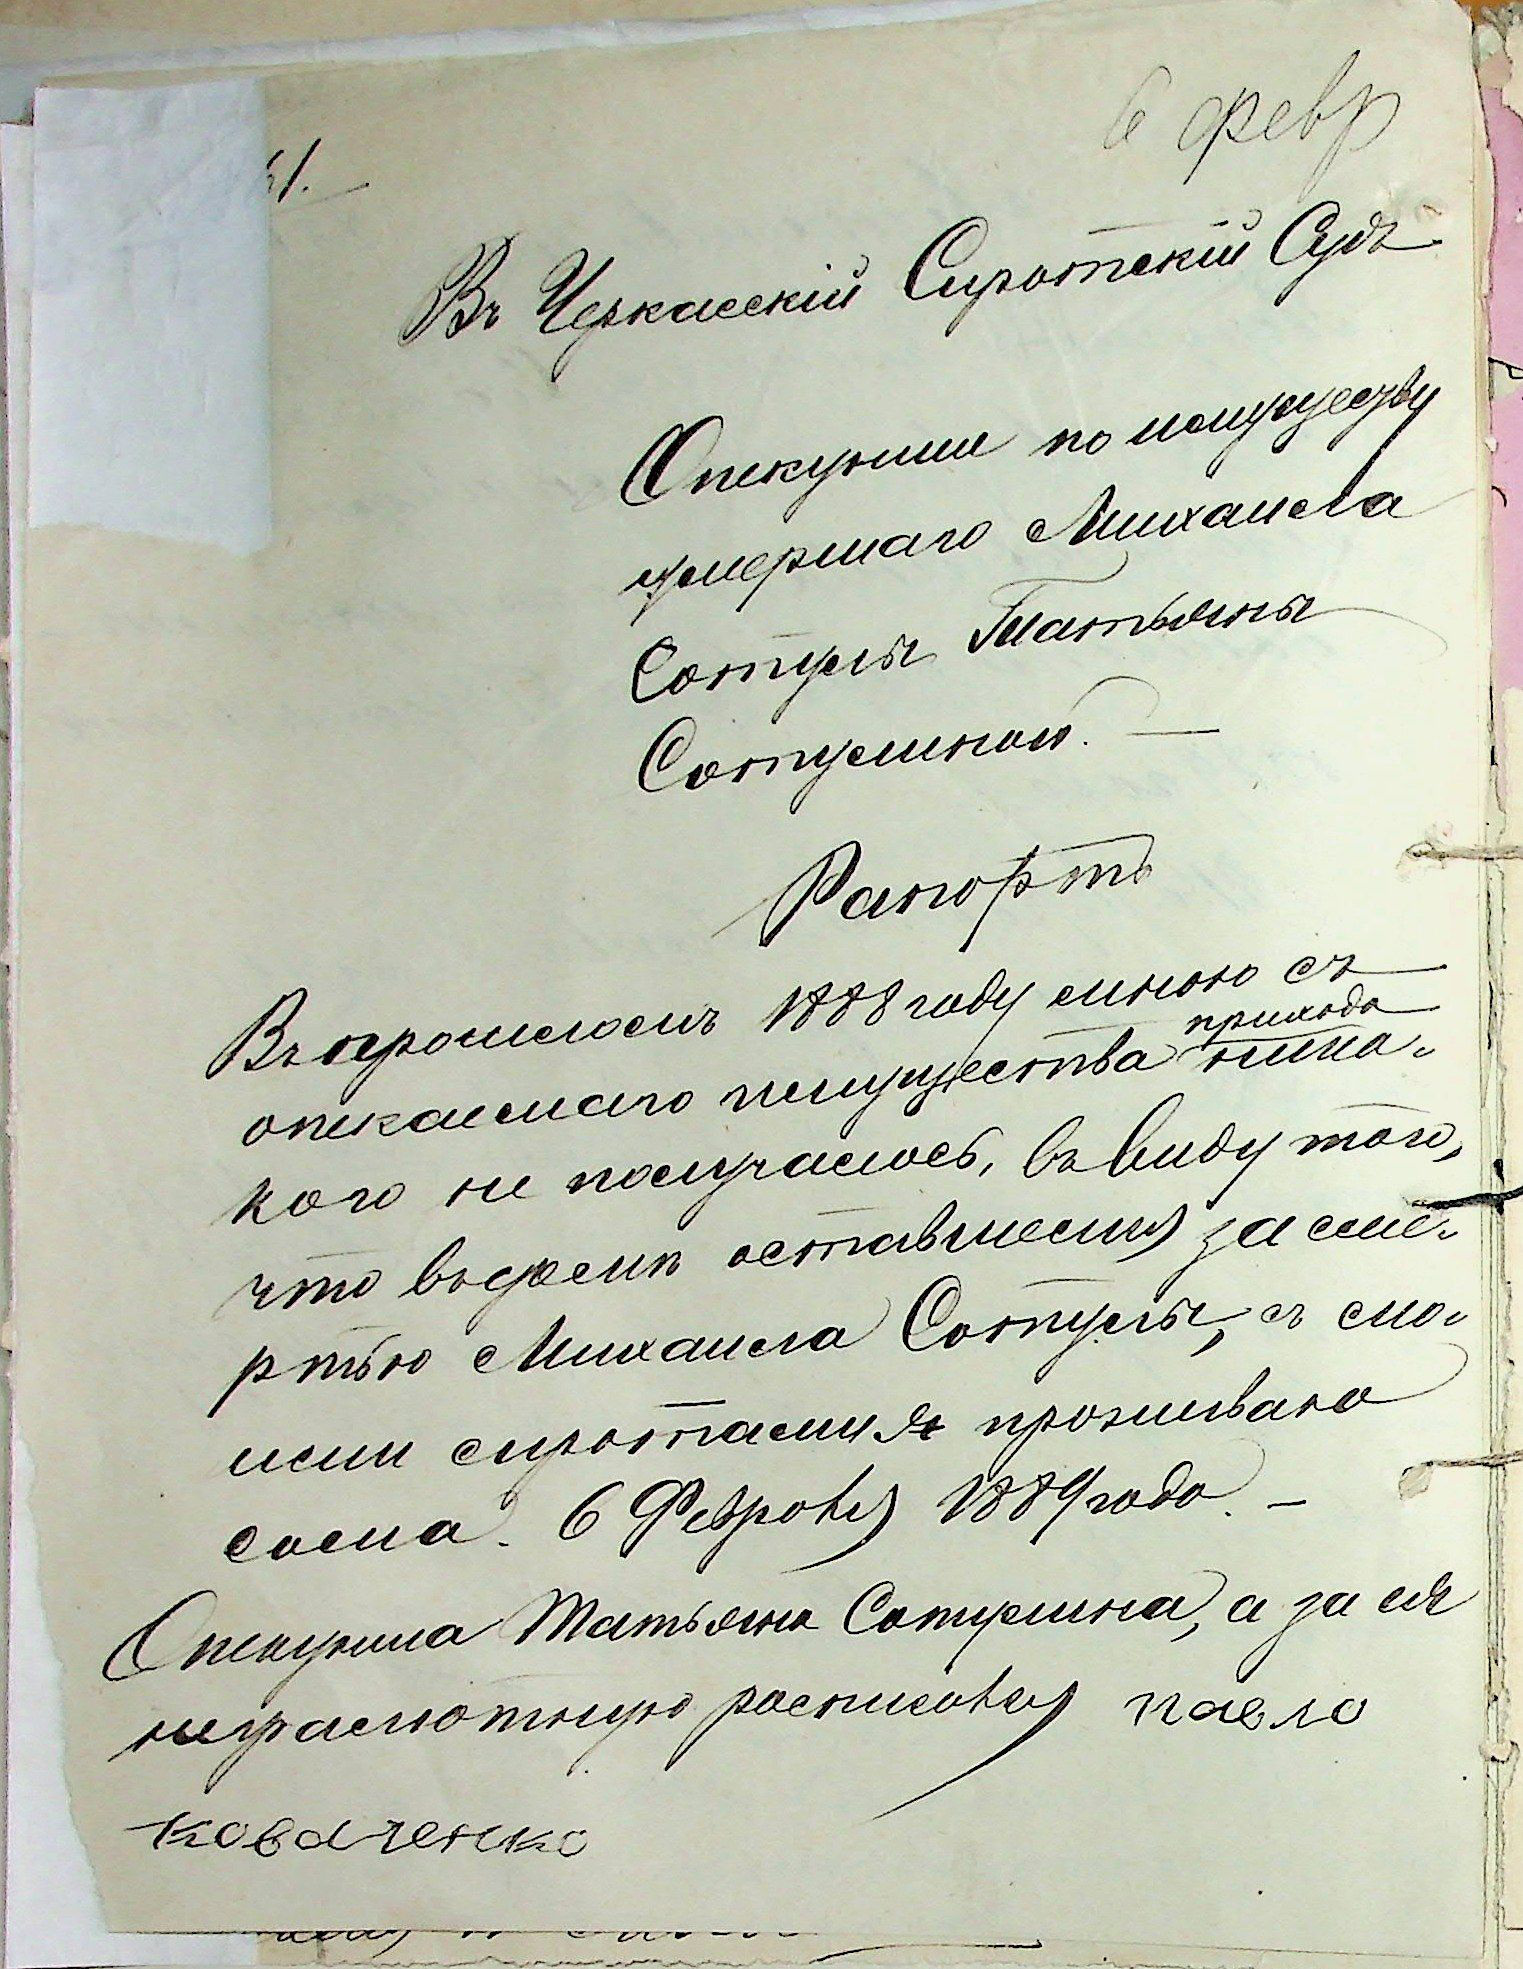 6 февр
51.
Въ Черкасскій Сиротскій Судъ
Опекунши по имуществу
умершаго Михаила
Сотулы Татьяны
Сотулиной. —
Рапортъ
Въ прошломъ 1888 году мною съ
прихода
опекаемаго имущества ника-
кого не получалось, въ виду того,
что въ домѣ оставшемся за сме-
ртью Михаила Сотулы, съ мо-
ими сиротами я проживаю
сама. 6 Февраля 1889 года. —
Опекунша Татьяна Сотулина, а за её
неграмотную росписался Павло
Коваленко